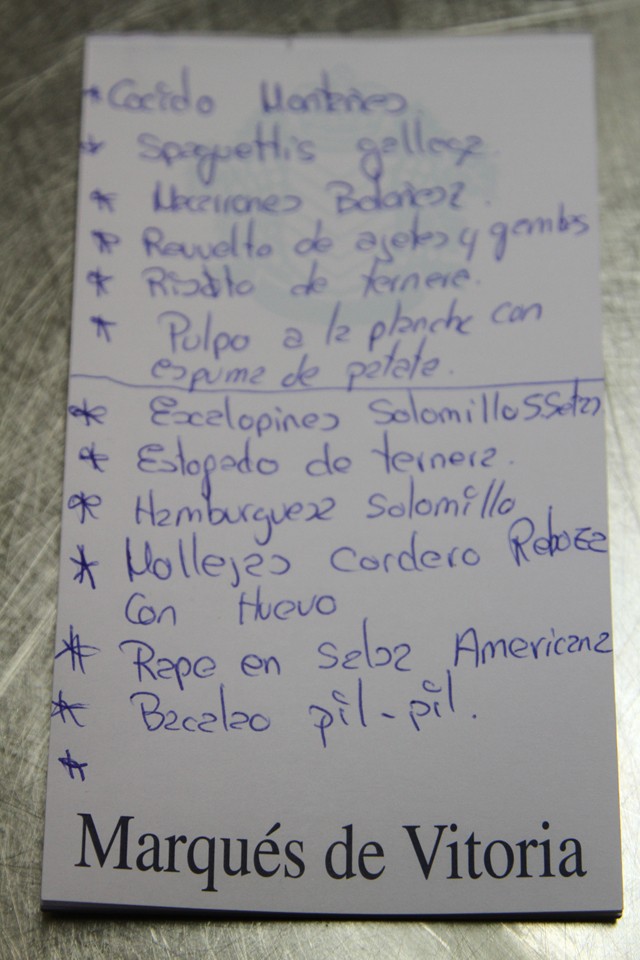 * Cocido Montañes
* Spaguettis gallega
* Macarrones Boloñesa.
* Revuelto de ajetes y gambas
* Risotto de ternera.
* Pulpo a la planche con
espuma de patata.
* Escalopines Solomillo S.Setas
* Estofado de ternera.
* Hamburguesa Solomillo
* Mollejas Cordero Reboza
Con Huevo
* Rape en Salsa Americana
* Bacalao pil-pil.
*
Marqués de Vitoria